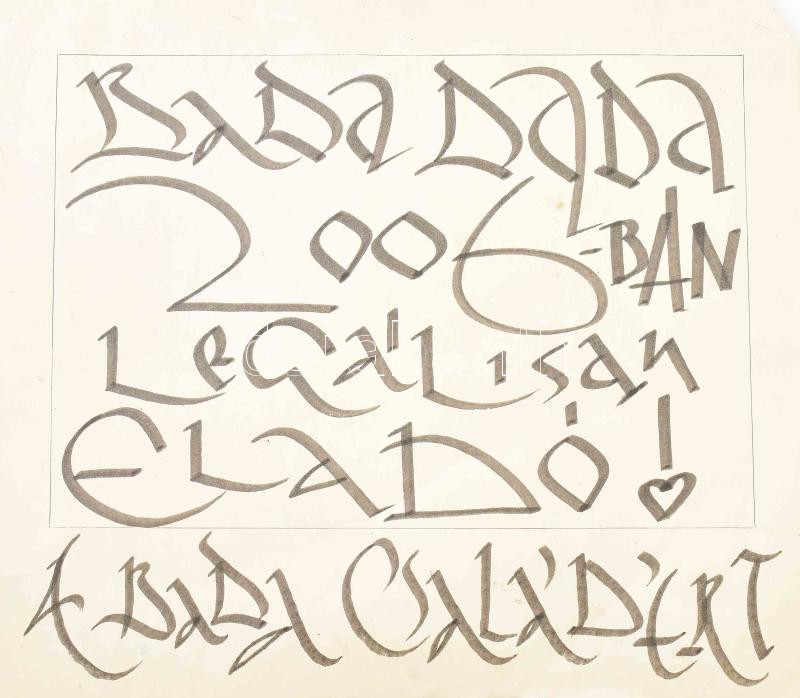 BADA DADA
2006-BAN
LEGÁLISAN
ELADÓ!
A BADA CSALÁDÉRT